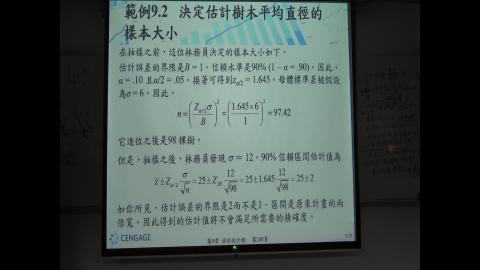 範例9.2 決定估計樹木平均直徑的
樣本大小
在抽樣之前，這位林務員決定的樣本大小如下。
估計誤差的界限是B = 1。信賴水準是90% (1 – α = .90)。因此，
α = .10 且α/2 = .05。接著可得到zα/2 = 1.645。母體標準差被假設
為σ = 6。因此，
n = (Zα/2σ / B)² = (1.645×6 / 1)² = 97.42
它進位之後是98 棵樹。
但是，抽樣之後，林務員發現 σ = 12。90% 信賴區間估計值為
x̄ ± Zα/2 σ/√n = 25 ± Z.05 12/√98 = 25 ± 1.645 12/√98 = 25 ± 2
如你所見，估計誤差的界限是2而不是1。區間是原來計畫的兩
倍寬。因此得到的估計值將不會滿足所需要的精確度。
CENGAGE